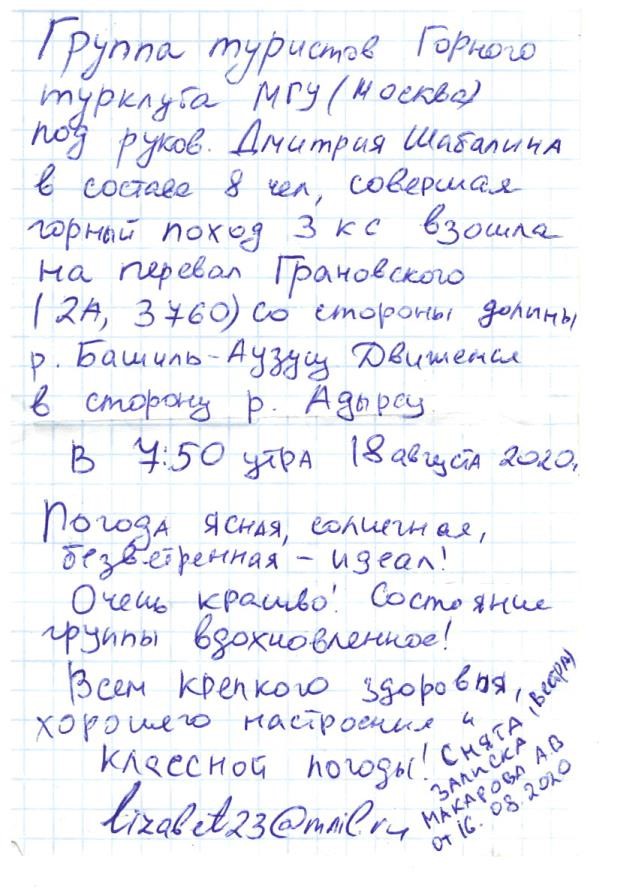 Группа туристов Горного
турклуба МГУ (Москва)
под руков. Дмитрия Шабалина
в составе 8 чел, совершая
горный поход 3 кс взошла
на перевал Грановского
(2А, 3760) со стороны долины
р. Башиль-Аузусу Движемся
в сторону р. Адырсу.
В 7:50 утра 18 августа 2020.
Погода ясная, солнечная,
безветренная – идеал!
Очень красиво! Состояние
группы вдохновленное!
Всем крепкого здоровья,
хорошего настроения и
классной погоды!
lizabet23@mail.ru
Снята
записка (Вестра)
Макарова А.В
от 16.08.2020